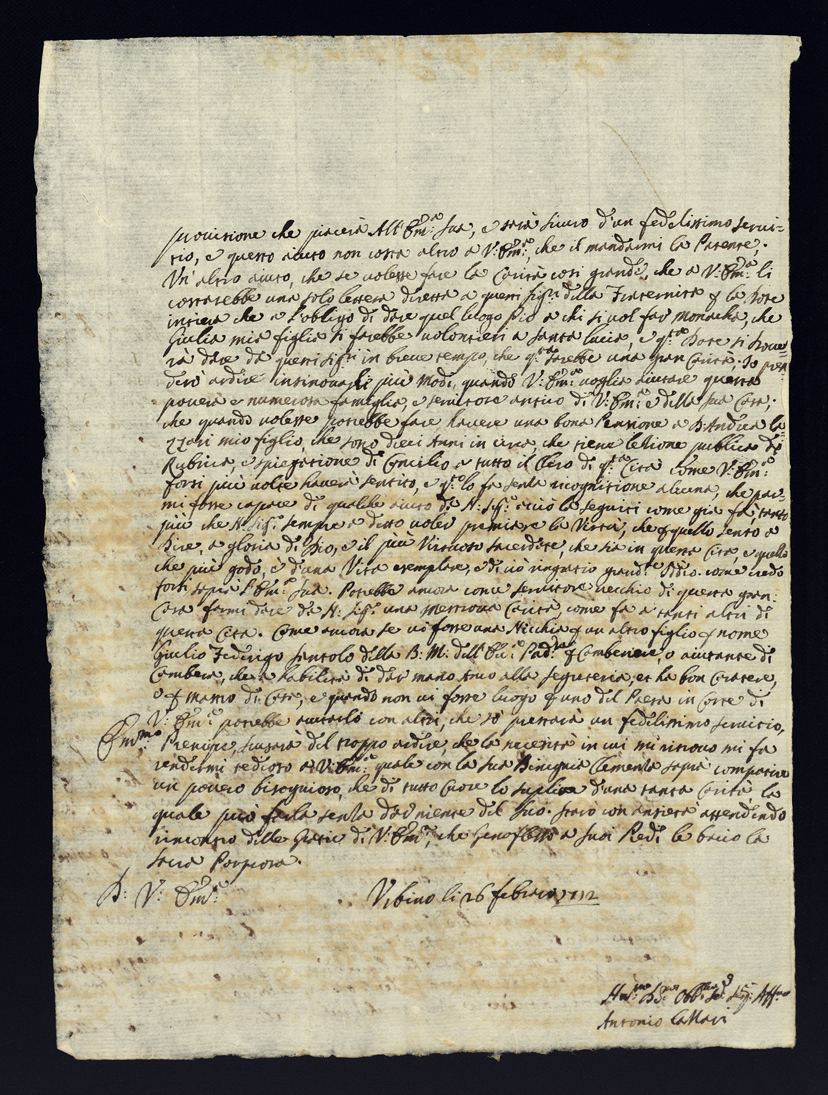 provisione che piacerà All'Em.ª Sua, e sarà sicuro d'un fedelissimo servi-
tio, e questo aiuto non costa altro a V: Em.ª, che il mandarmi la Patente.
Un'altro aiuto, che se volesse fare la Carità così grande, che a V: Em.ª li
costarebbe una sola lettera diretta a questi Sig.ri della Fraternità p la Dote
intiera che a l'obligo di dare quel luogo Pio a chi si vol far monacha, che
Giulia mia figlia si farebbe volontieri a Santa Lucia, e q.ta Dote si
rà dare da questi Sig.ri in breve tempo, che q.ta sarebbe una gran Carità; Io pren-
derò ardire insinuargli più modi, quando V: Em.ª voglia aiutare questa
povera e numerosa famiglia, e servitore antico di V: Em.ª e della sua Casa;
che quando volesse potrebbe fare havere una bona Pensione a D. Andrea La-
zzari mio figlio, che sono dieci Anni in circa, che tiene lettione publica di
Rubrica, e spiegatione di Concilio a tutto il Clero di q.ta Città come V: Em.ª
forsi più volte haverà sentito, e q.to lo fa senza ricognitione alcuna, che par-
mi fosse capace di qualche aiuto da N: Sig.re acciò la seguiti come già fa, tanto
più che N: Sig.re sempre a detto voler premiare la Virtù, che p quello sento a
dire, a gloria di Dio, e il più Virtuoso sacerdote, che sia in questa Città, e quello
che più godo, e d'una Vita exemplare, e di ciò ringratio grand.e Iddio, come credo
forsi sapia l'Em.ª Sua. Potrebbe ancora come servitore vecchio di questa gran
Casa farmi dare da N: Sig.re una Carità, come fa a tanti altri di
questa Città. Come ancora se vi fosse una Nicchia p un altro figlio p nome
Giulio Federigo Santolo della B: M: dell' p Cameriere, o aiutante di
Camera, che a habilità di dar mano anco alla segreteria, et ha bon Caratere,
o p Mastro di Casa, e quando non vi fosse luogo p uno del Paese in Corte di
V: Em.ª potrebbe aiutarlo con altri, che so prestarà un fedelissimo servitio,
Em.mo Prencipe, scusarà del troppo ardire, che la necessità in cui mi ritrovo mi fa
rendermi tedioso a V: Em.ª quale con la sua Benigna Clemenza saprà compatire
un povero bisognioso, che di tutto Cuore lo suplica d'una tanta Carità la
quale può farla senza dar niente del suo. Starò con ansietà attendendo
riscontro delle Gratie di V: Em.ª, che genoflesso a suoi Piedi le bacio la
sacra Porpora.
D: V: Em.ª
Urbino li 26 febraro 1712
Hum.mo D.mo Obb.mo Ser.re Aff.mo
Antonio Lazzari